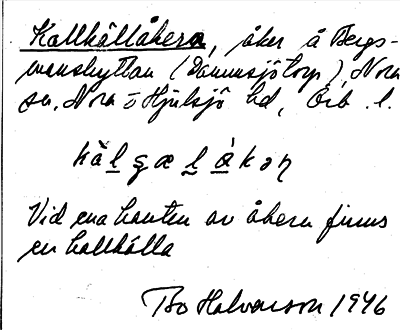 Kallkällåkern, åker å Bergs-
manshyttan (Dammsjötorp), Nora
sn, Nora o Hjulsjö hd, Örb. l.
kàlgælåkən
Vid ena kanten av åkern finns
en kallkälla
Bo Halvarson 1946